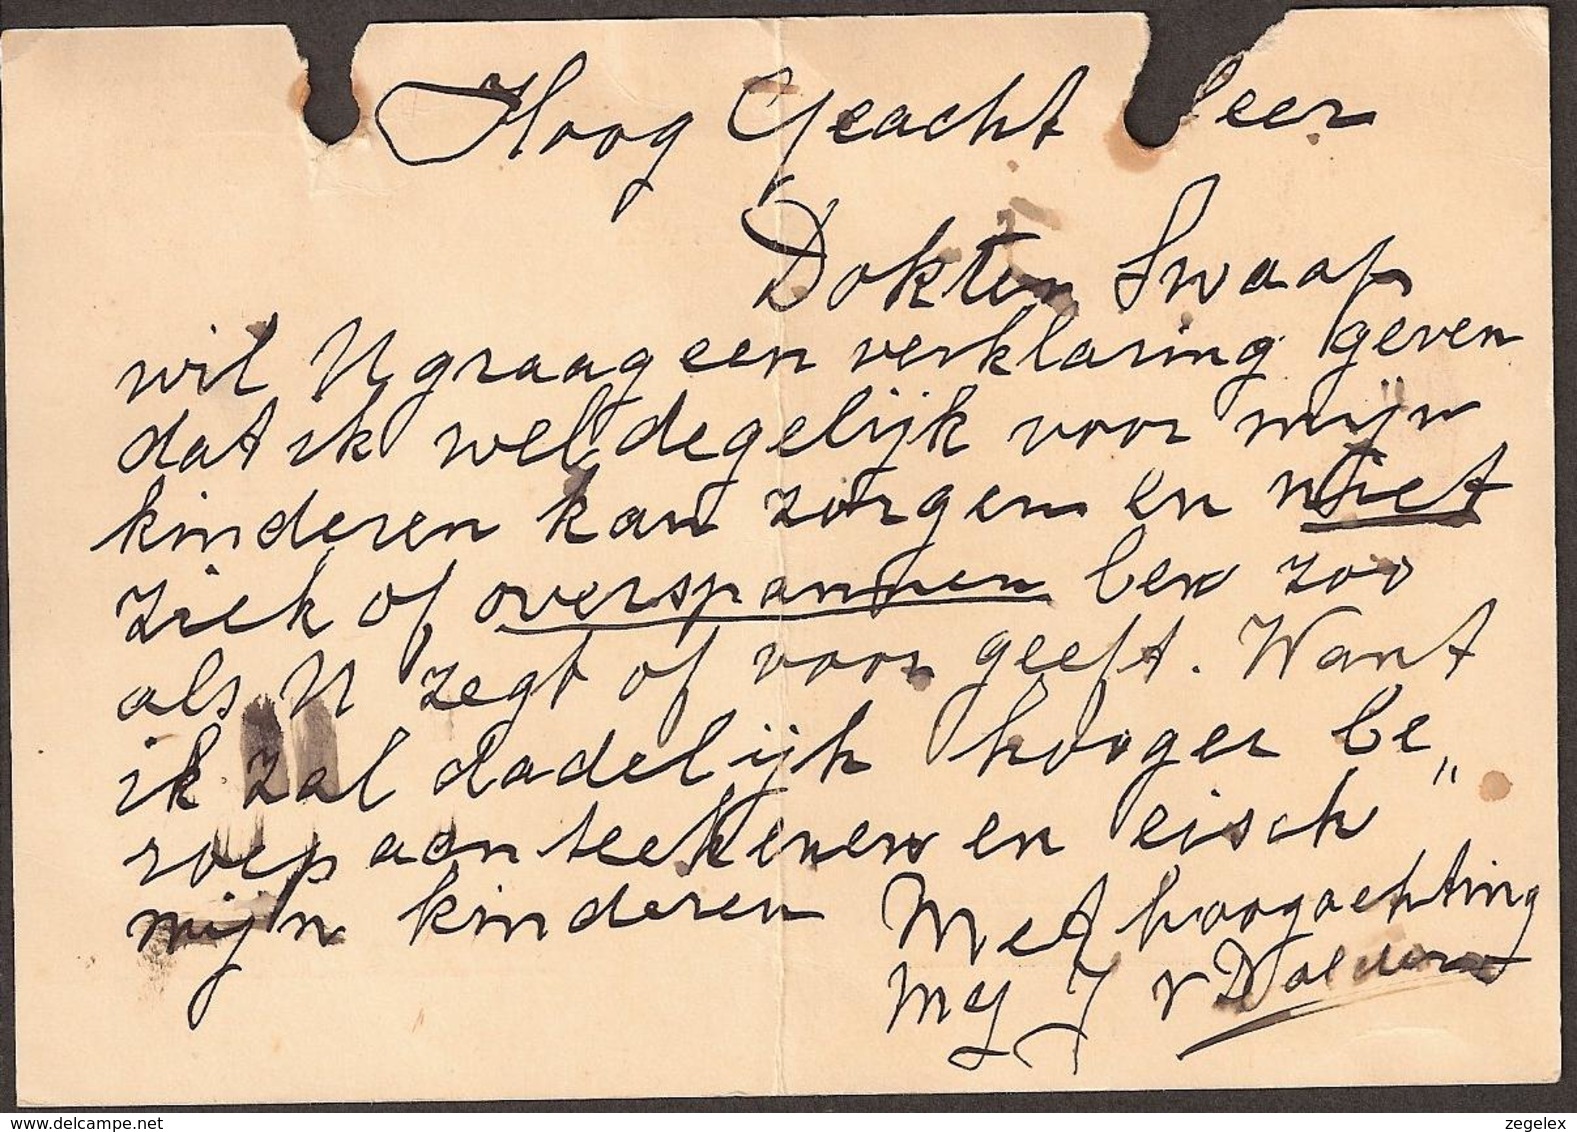 Hoog Geacht Heer
Dokter Swaap
wil U graag een verklaring geven
dat ik wel degelijk voor mijn
kinderen kan zorgen en niet
ziek of overspannen ben zoo
als U zegt of voor geeft. Want
ik zal dadelijk hooger be„
roep aan teekenen en eisch
mijn kinderen
Met hoogachting
Mej J v
zegelex - www.delcampe.net